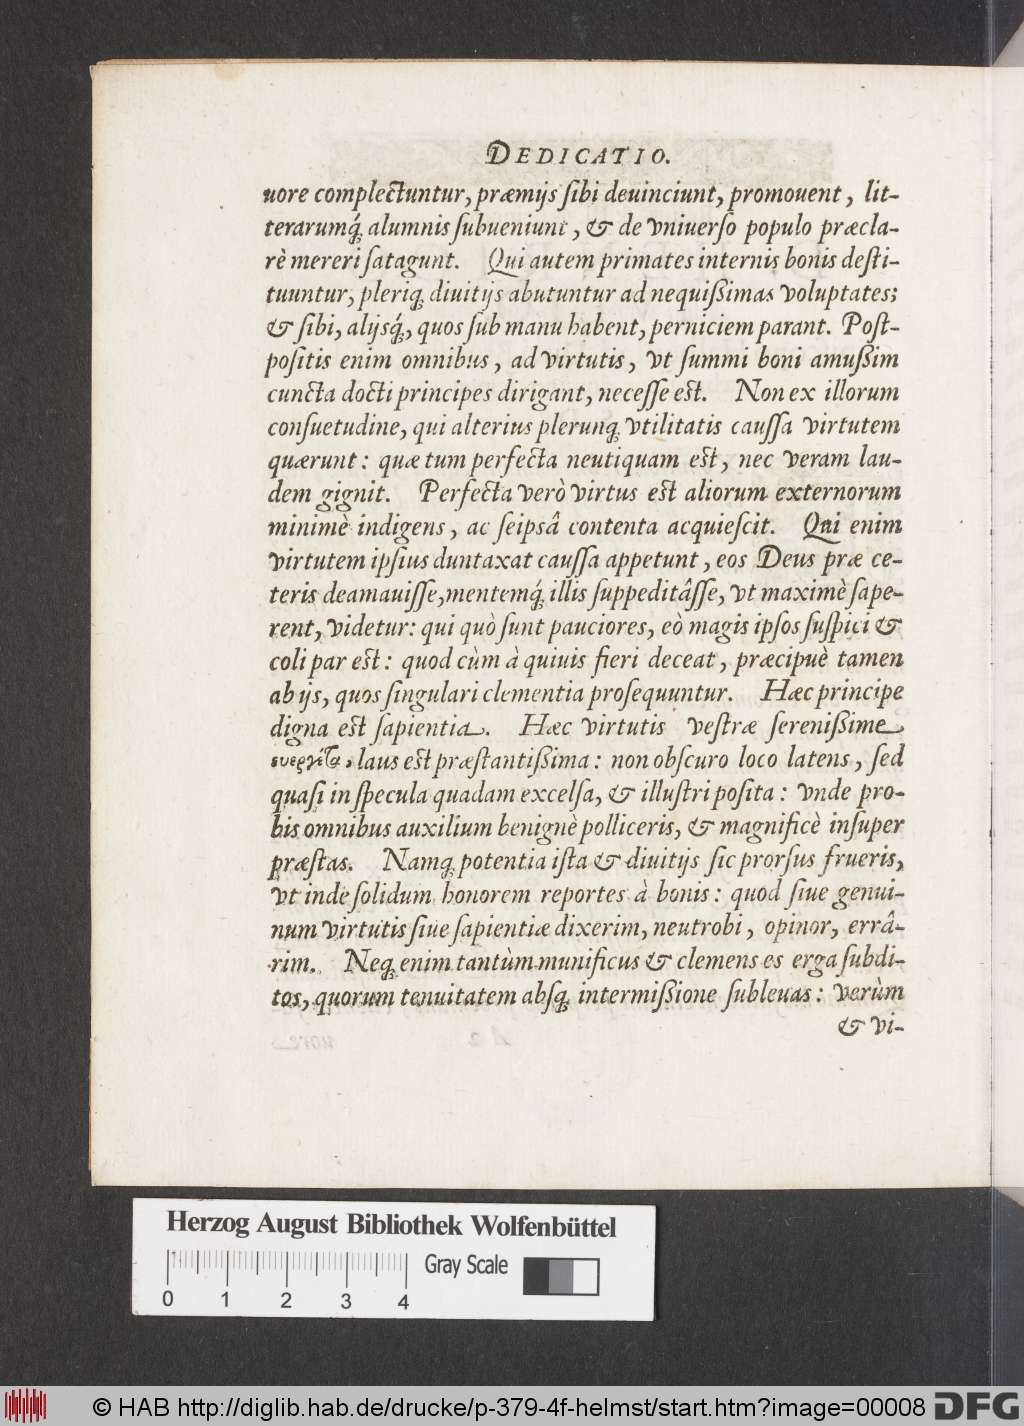 DEDICATIO.
uore complectuntur, præmijs ſibi deuinciunt, promouent, lit-
terarumq́; alumnis ſubueniunt, & de vniuerſo populo præcla-
rè mereri ſatagunt. Qui autem primates internis bonis deſti-
tuuntur, pleriq; diuitijs abutuntur ad nequißimas voluptates;
& ſibi, alijsq́;, quos ſub manu habent, perniciem parant. Poſt-
poſitis enim omnibus, ad virtutis, vt ſummi boni amußim
cuncta docti principes dirigant, neceſſe eſt. Non ex illorum
conſuetudine, qui alterius plerunq; vtilitatis cauſſa virtutem
quærunt: quæ tum perfecta neutiquam eſt, nec veram lau-
dem gignit. Perfecta verò virtus eſt aliorum externorum
minimè indigens, ac ſeipsâ contenta acquieſcit. Qui enim
virtutem ipſius duntaxat cauſſa appetunt, eos Deus præ ce-
teris deamauiſſe, mentemq́; illis ſuppeditâſſe, vt maximè ſape-
rent, videtur: qui quò ſunt pauciores, eò magis ipſos ſuſpici &
coli par eſt: quod cùm à quiuis fieri deceat, præcipuè tamen
ab ijs, quos ſingulari clementia proſequuntur. Hæc principe
digna eſt ſapientia. Hæc virtutis veſtræ ſerenißime
ευεργέτα, laus eſt præſtantißima: non obſcuro loco latens, ſed
quaſi in ſpecula quadam excelſa, & illuſtri poſita: vnde pro-
bis omnibus auxilium benignè polliceris, & magnificè inſuper
præſtas. Namq; potentia iſta & diuitijs ſic prorſus frueris,
vt inde ſolidum honorem reportes à bonis: quod ſiue genui-
num virtutis ſiue ſapientiæ dixerim, neutrobi, opinor, errâ-
rim. Neq; enim tantùm munificus & clemens es erga ſubdi-
tos, quorum tenuitatem abſq; intermißione ſubleuas: verùm
& vi-
Herzog August Bibliothek Wolfenbüttel
Gray Scale
0 1 2 3 4
© HAB http://diglib.hab.de/drucke/p-379-4f-helmst/start.htm?image=00008 DFG